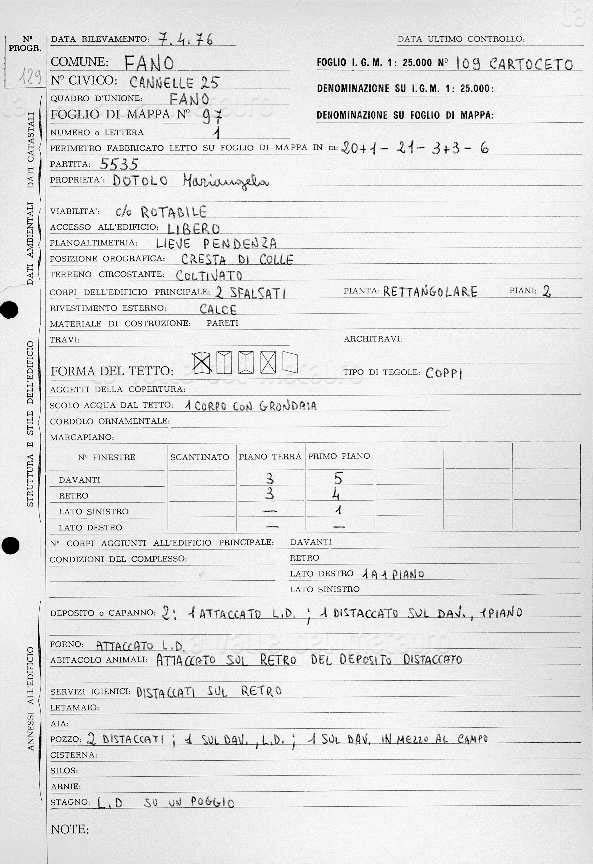 Nº PROGR. DATA RILEVAMENTO: 7.4.76 DATA ULTIMO CONTROLLO:
129
COMUNE: FANO FOGLIO I.G.M. 1: 25.000 Nº 109 CARTOCETO
Nº CIVICO: CANNELLE 25 DENOMINAZIONE SU I.G.M. 1: 25.000:
QUADRO D'UNIONE: FANO
FOGLIO DI MAPPA Nº 97 DENOMINAZIONE SU FOGLIO DI MAPPA:
NUMERO o LETTERA 1
PERIMETRO FABBRICATO LETTO SU FOGLIO DI MAPPA IN m: 20+1-21-3+3-6
PARTITA: 5535
PROPRIETA': DOTOLO Mariangela
DATI CATASTALI
VIABILITA': c/o ROTABILE
ACCESSO ALL'EDIFICIO: LIBERO
PLANOALTIMETRIA: LIEVE PENDENZA
POSIZIONE OROGRAFICA: CRESTA DI COLLE
TERRENO CIRCOSTANTE: COLTIVATO
DATI AMBIENTALI
CORPI DELL'EDIFICIO PRINCIPALE: 2 SFALSATI PIANTA: RETTANGOLARE PIANI: 2
RIVESTIMENTO ESTERNO: CALCE
MATERIALE DI COSTRUZIONE: PARETI
TRAVI: ARCHITRAVI:
FORMA DEL TETTO: TIPO DI TEGOLE: COPPI
AGGETTI DELLA COPERTURA:
SCOLO ACQUA DAL TETTO: 1 CORPO CON GRONDAIA
CORDOLO ORNAMENTALE:
MARCAPIANO:
Nº FINESTRE SCANTINATO PIANO TERRA PRIMO PIANO
DAVANTI 3 5
RETRO 3 4
LATO SINISTRO — 1
LATO DESTRO — —
STRUTTURA E STILE DELL'EDIFICIO
Nº CORPI AGGIUNTI ALL'EDIFICIO PRINCIPALE: DAVANTI
CONDIZIONI DEL COMPLESSO: RETRO
LATO DESTRO 1 A 1 PIANO
LATO SINISTRO
DEPOSITO o CAPANNO: 2: 1 ATTACCATO L.D. ; 1 DISTACCATO SUL DAV., 1 PIANO
FORNO: ATTACCATO L.D.
ABITACOLO ANIMALI: ATTACCATO SUL RETRO DEL DEPOSITO DISTACCATO
SERVIZI IGIENICI: DISTACCATI SUL RETRO
LETAMAIO:
AIA:
POZZO: 2 DISTACCATI ; 1 SUL DAV. L.D. ; 1 SUL DAV. IN MEZZO AL CAMPO
CISTERNA:
SILOS:
ARNIE:
STAGNO: L.D SU UN POGGIO
ANNESSI ALL'EDIFICIO
NOTE: